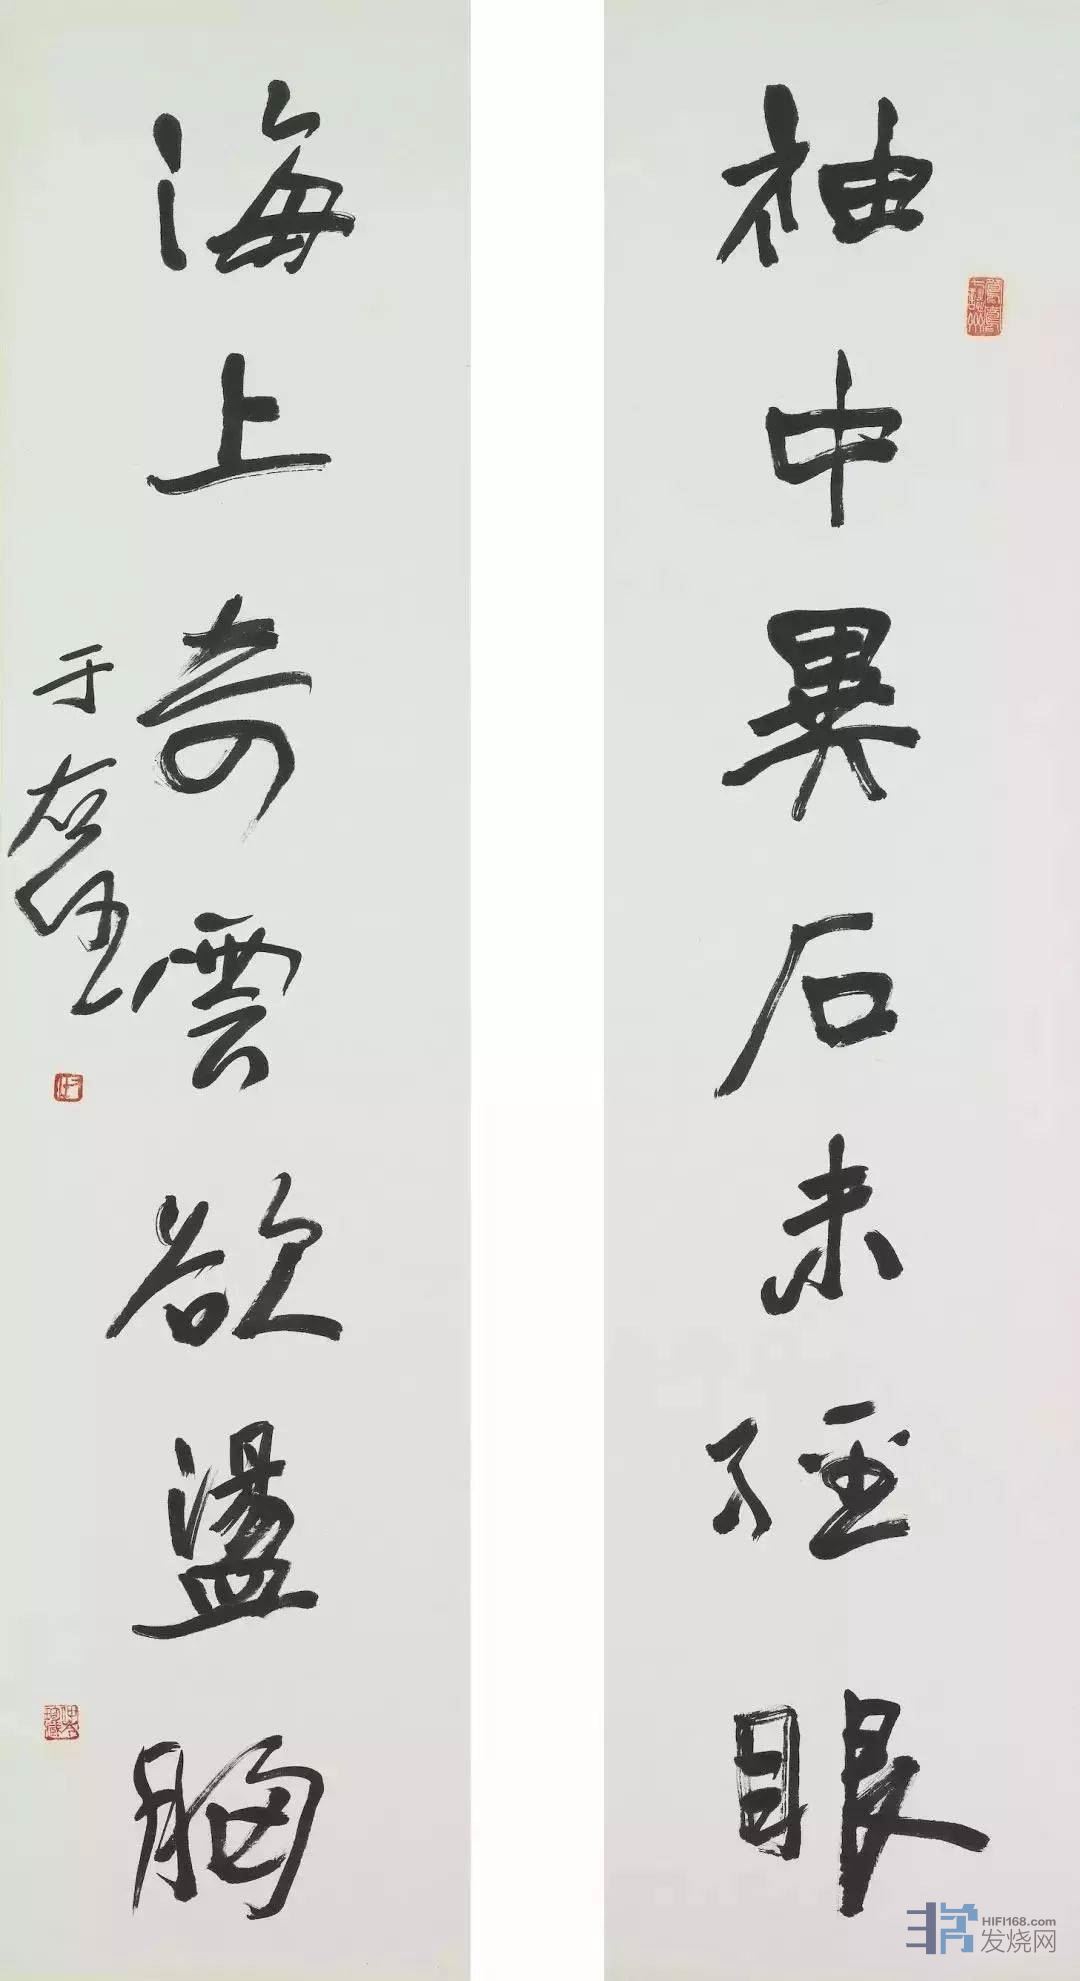 袖中異石未經眼
海上奇雲欲盪胸
于右任
HIFI168.com
发烧网